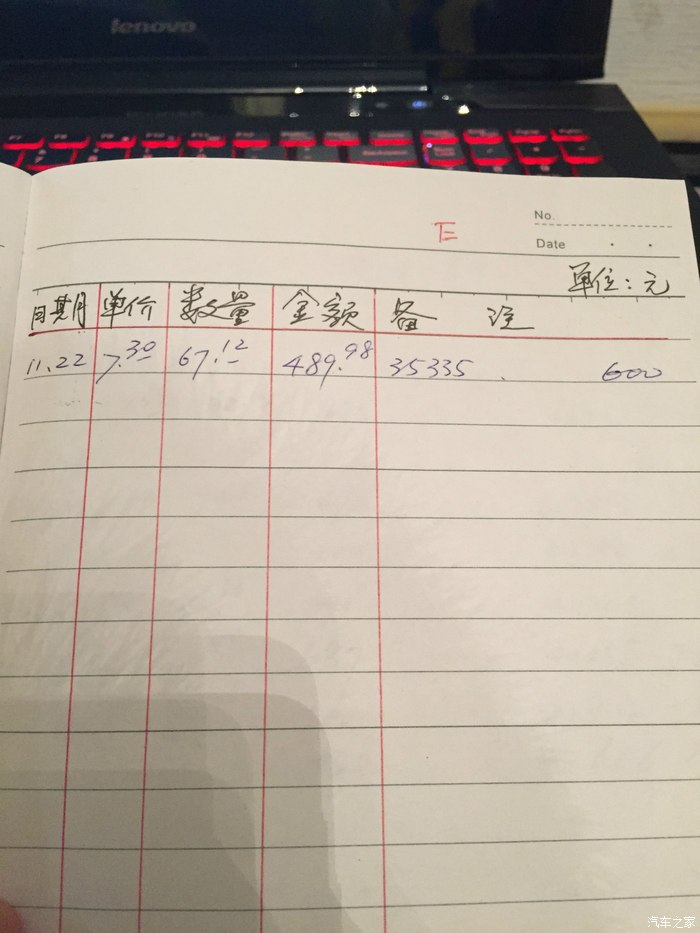 lenovo
No.
E
Date . .
单位:元
日期 单价 数量 金额 备 注
11.22 7.30 67.12 489.98 35335 . 600
汽车之家